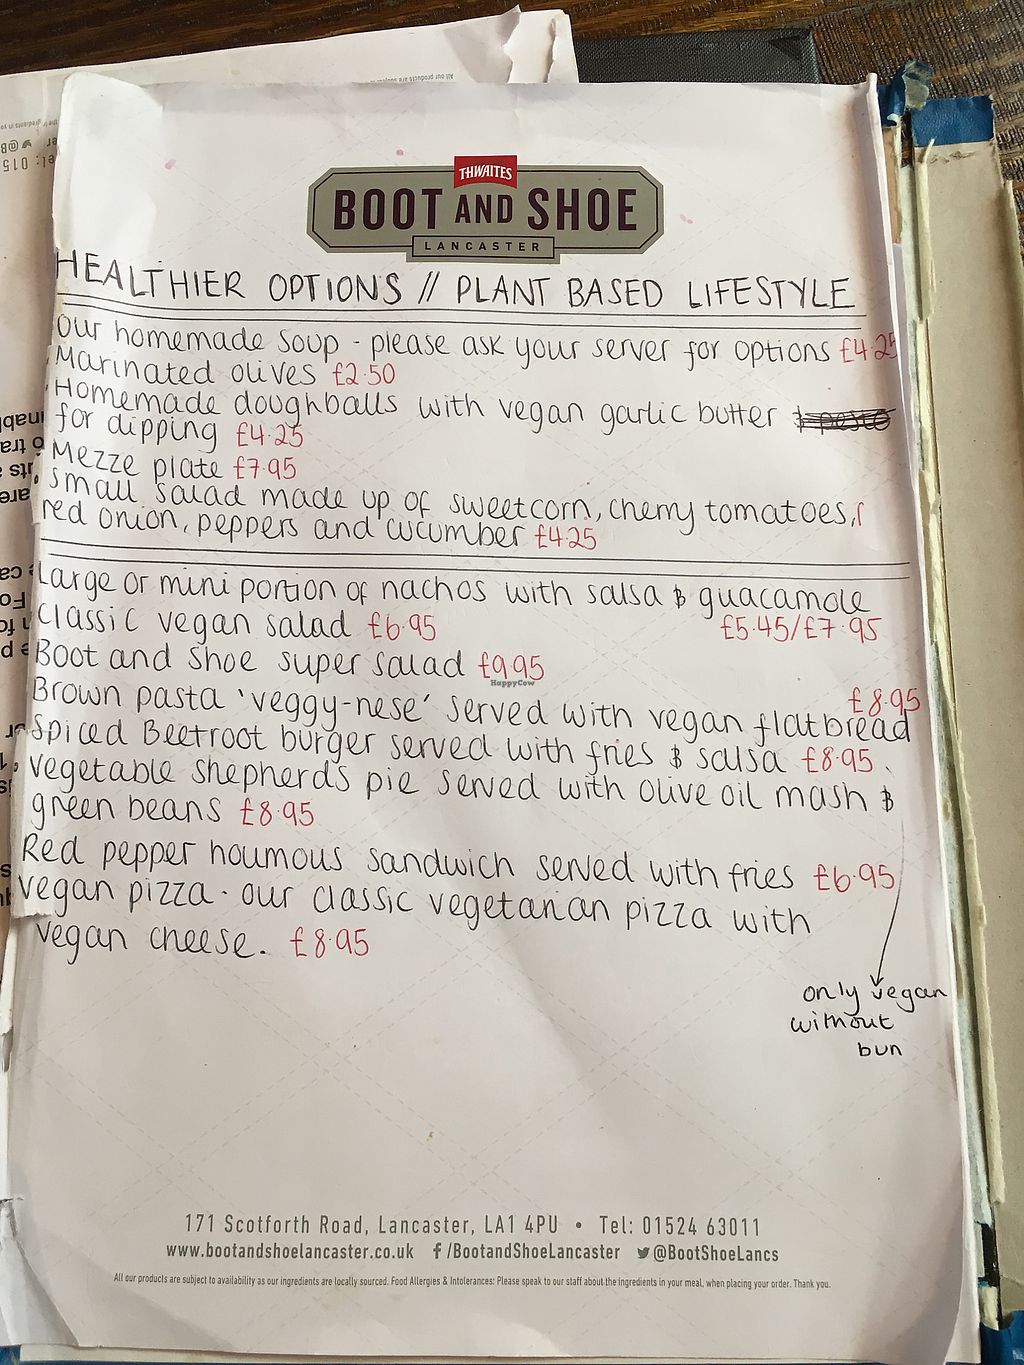 THWAITES
BOOT AND SHOE
LANCASTER
HEALTHIER OPTIONS // PLANT BASED LIFESTYLE
Our homemade soup - please ask your server for options £4.25
Marinated olives £2.50
Homemade doughballs with vegan garlic butter
for dipping £4.25
Mezze plate £7.95
Small salad made up of sweetcorn, cherry tomatoes,
red onion, peppers and cucumber £4.25
Large or mini portion of nachos with salsa & guacamole
£5.45/£7.95
Classic vegan salad £6.95
Boot and Shoe super salad £9.95
HappyCow
£8.95
Brown pasta 'veggy-nese' served with vegan flatbread
Spiced Beetroot burger served with fries & salsa £8.95.
Vegetable shepherd's pie served with olive oil mash &
green beans £8.95
Red pepper houmous sandwich served with fries £6.95
Vegan pizza - our classic vegetarian pizza with
vegan cheese. £8.95
only vegan
without
bun
171 Scotforth Road, Lancaster, LA1 4PU • Tel: 01524 63011
www.bootandshoelancaster.co.uk f/BootandShoeLancaster @BootShoeLancs
All our products are subject to availability as our ingredients are locally sourced. Food Allergies & Intolerances: Please speak to our staff about the ingredients in your meal, when placing your order. Thank you.